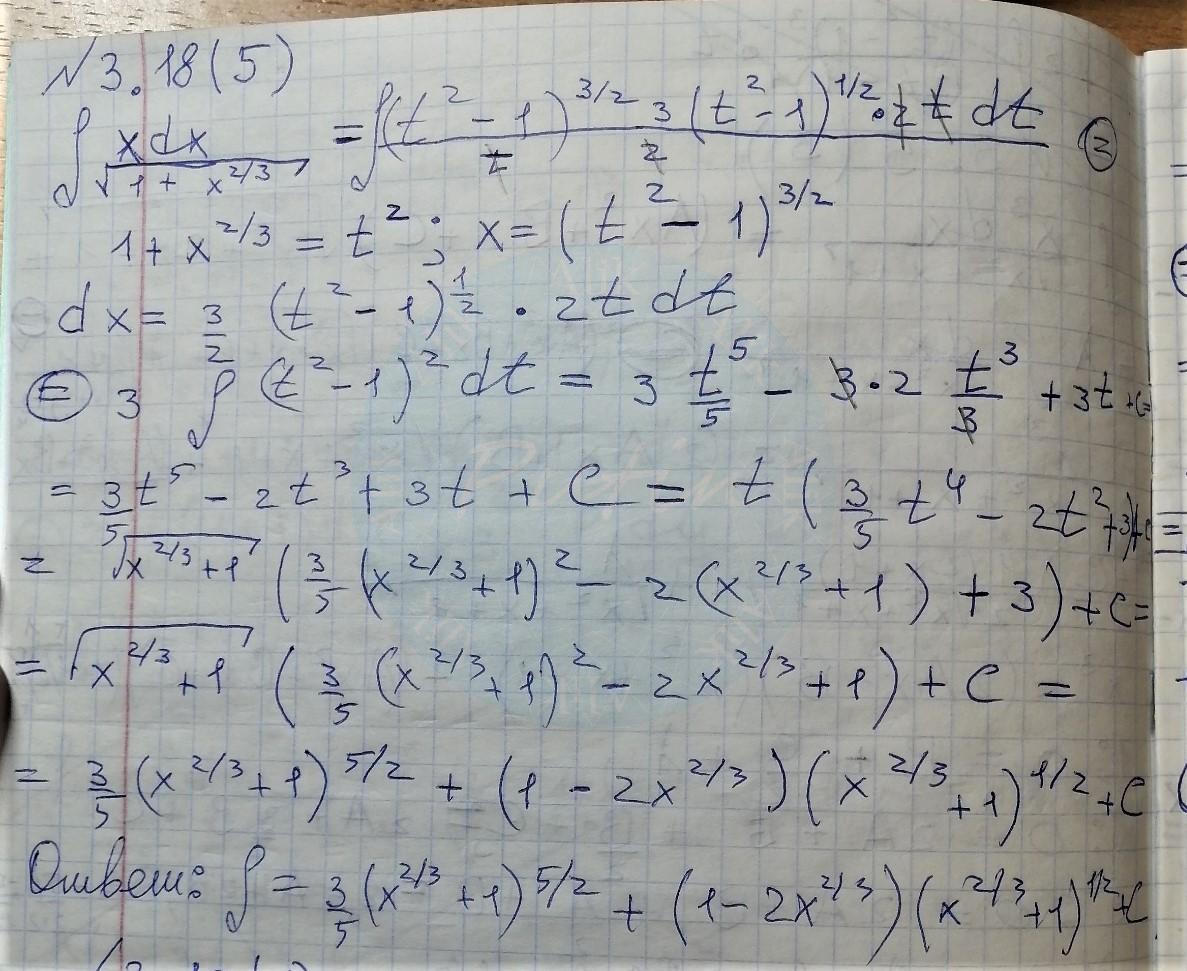 №3.18(5)
∫ x dx / √(1 + x^(2/3)) = ∫ (t² - 1)^(3/2) 3 (t² - 1)^(1/2) · 2 t dt / t 2 (=)
1 + x^(2/3) = t² ; x = (t² - 1)^(3/2)
dx = 3/2 (t² - 1)^(1/2) · 2t dt
(=) 3 ∫ (t² - 1)² dt = 3 t⁵/5 - 3·2 t³/3 + 3t + C =
= 3/5 t⁵ - 2t³ + 3t + C = t (3/5 t⁴ - 2t² + 3) + C =
= √(x^(2/3) + 1) (3/5 (x^(2/3) + 1)² - 2 (x^(2/3) + 1) + 3) + C =
= √(x^(2/3) + 1) (3/5 (x^(2/3) + 1)² - 2x^(2/3) + 1) + C =
= 3/5 (x^(2/3) + 1)^(5/2) + (1 - 2x^(2/3)) (x^(2/3) + 1)^(1/2) + C
Ответ: ∫ = 3/5 (x^(2/3) + 1)^(5/2) + (1 - 2x^(2/3)) (x^(2/3) + 1)^(1/2) + C